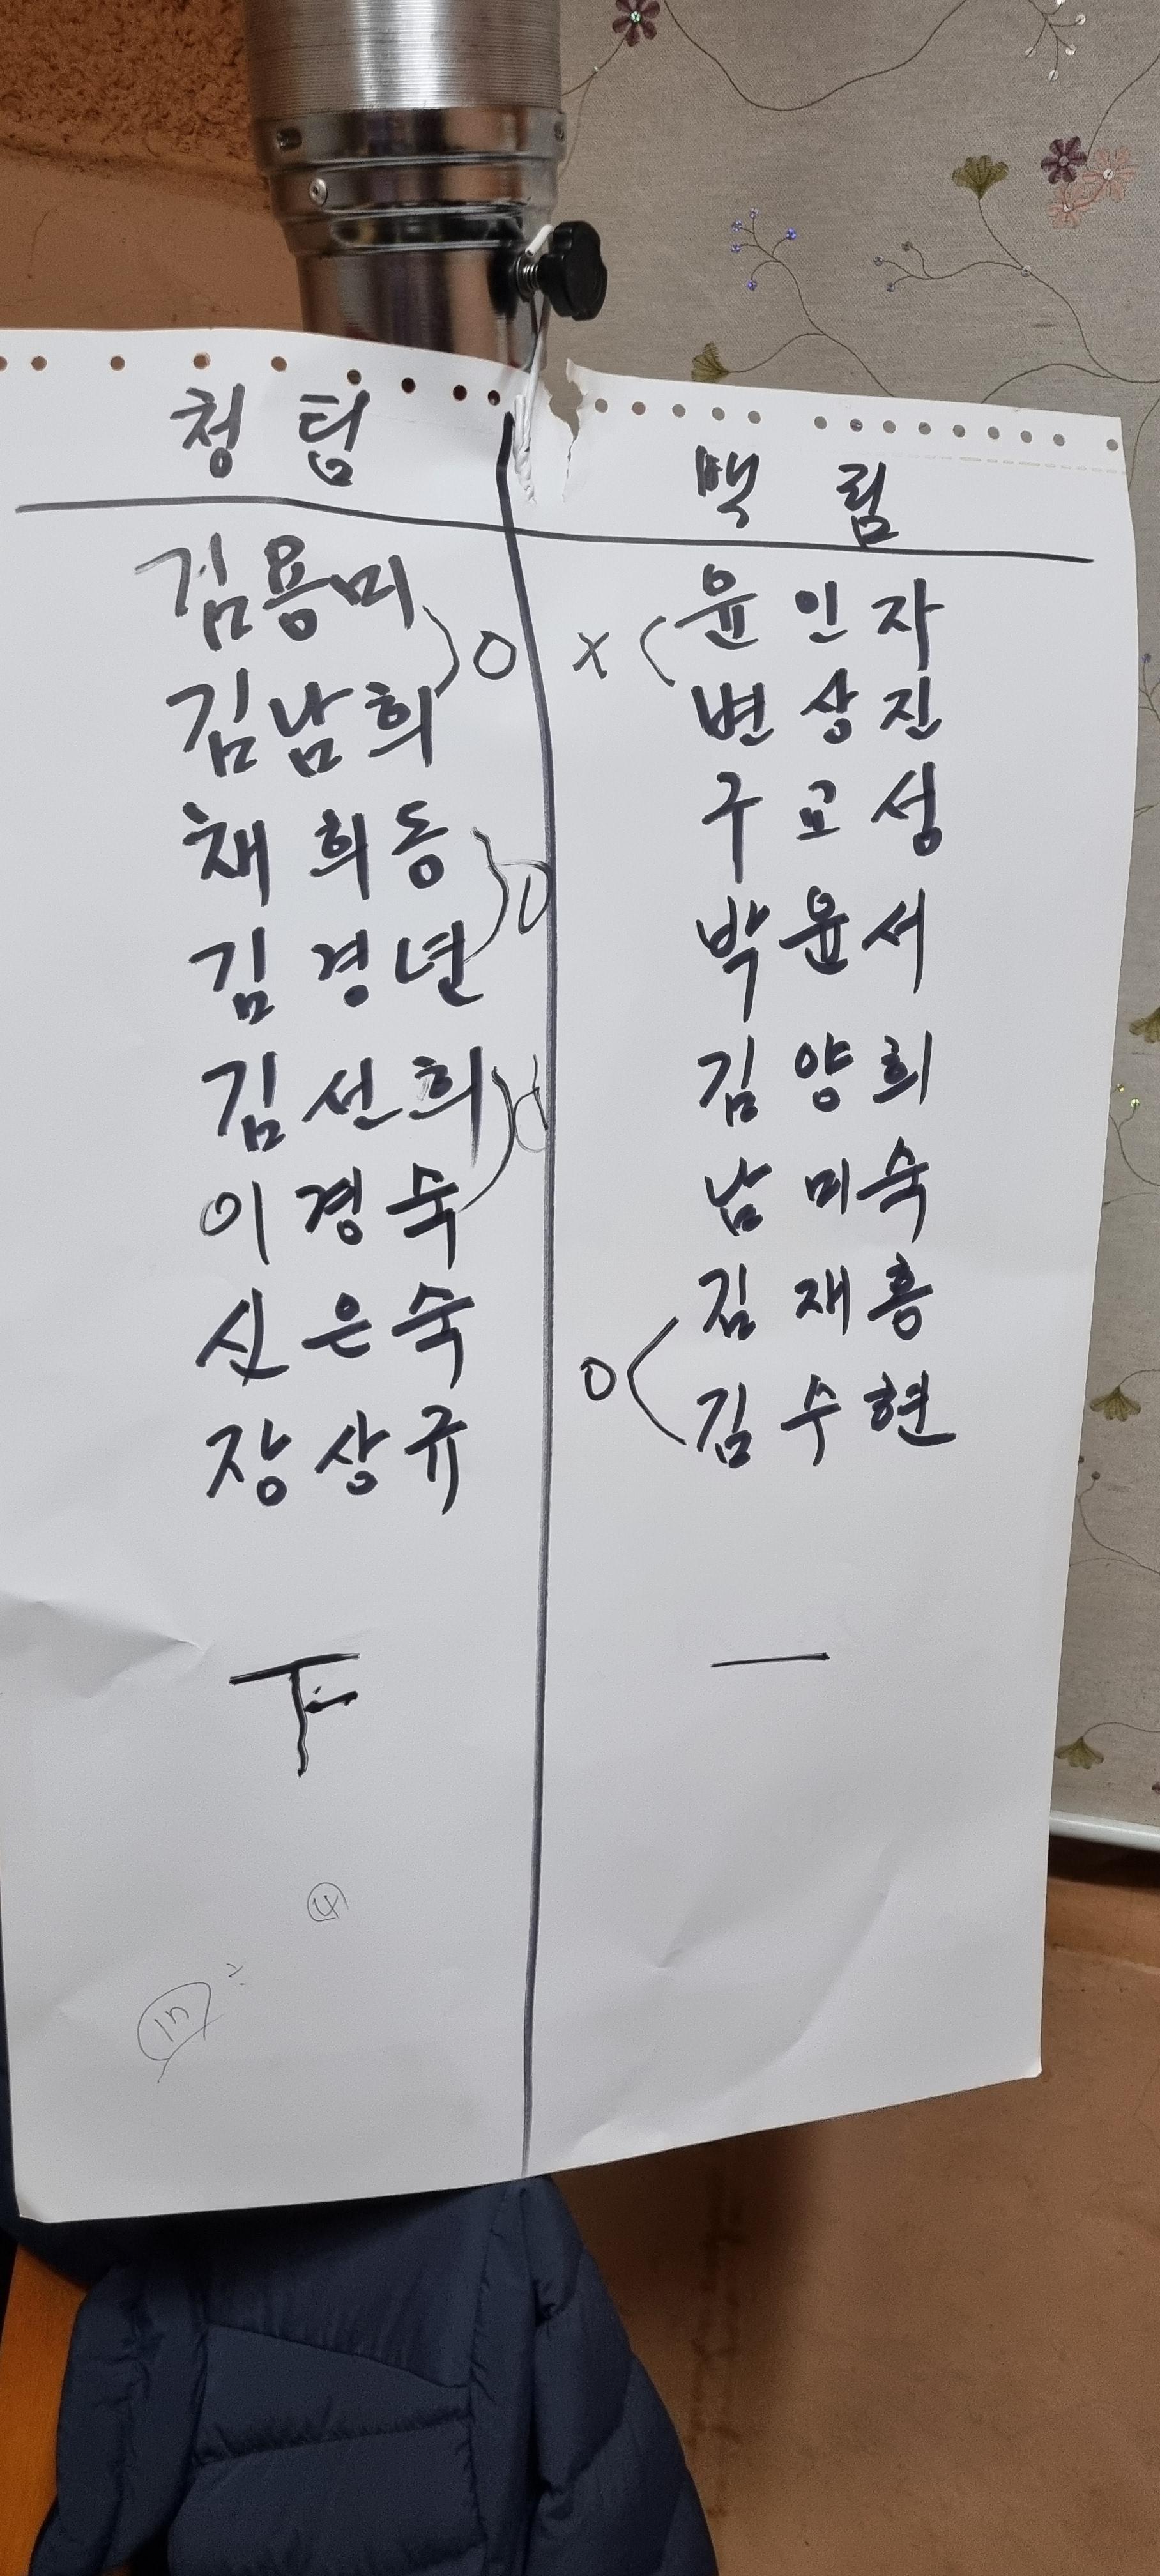 청팀
백팀
김용미
김남희
O
X
윤인자
변상진
채희동
김경년
O
구교성
박윤서
김선희
이경숙
김양희
남미숙
신은숙
장상규
O
김재홍
김수현
下
一
④